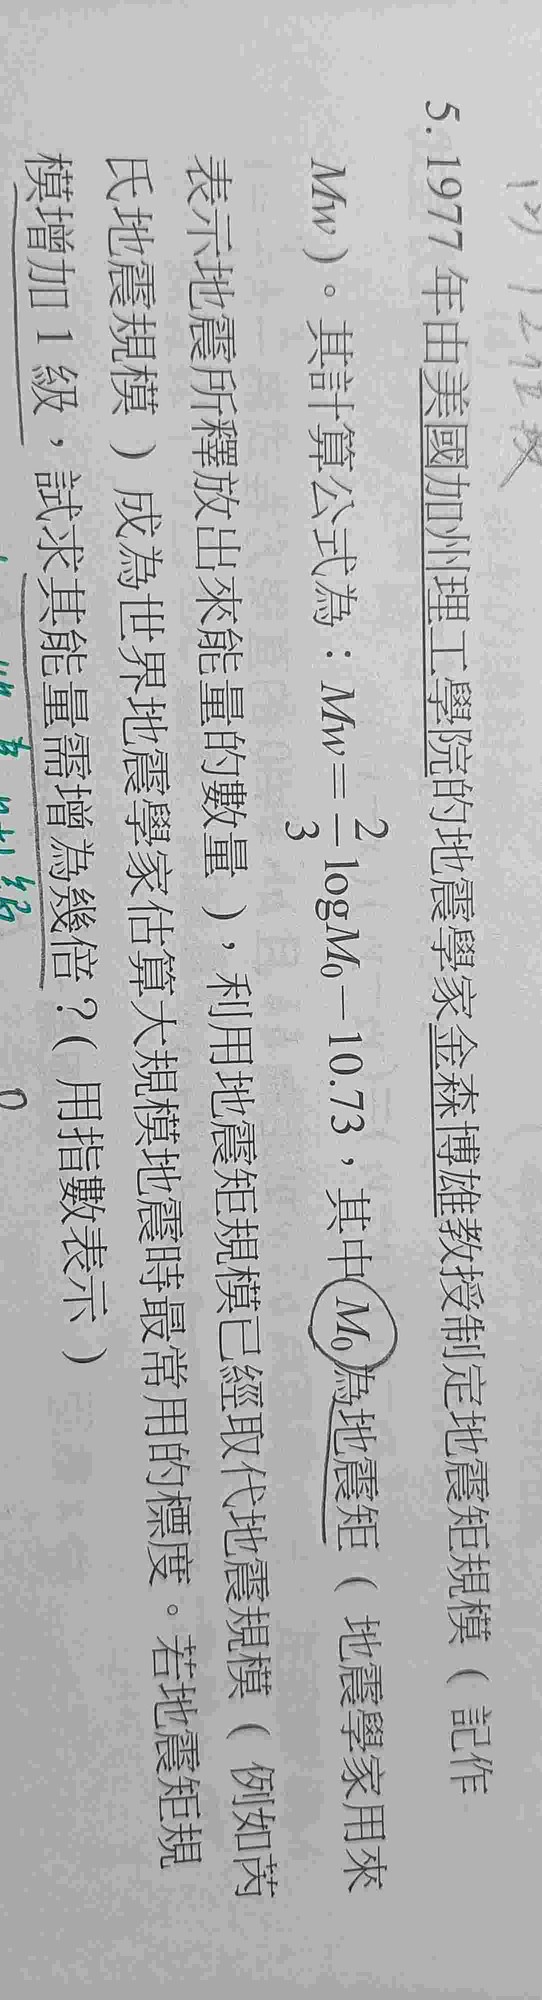 5. 1977 年由美國加州理工學院的地震學家金森博雄教授制定地震矩規模（記作
Mw）。其計算公式為：Mw=2/3 logM₀−10.73，其中M₀為地震矩（地震學家用來
表示地震所釋放出來能量的數量），利用地震矩規模已經取代地震規模（例如芮
氏地震規模）成為世界地震學家估算大規模地震時最常用的標度。若地震矩規
模增加 1 級，試求其能量需增為幾倍？（用指數表示）